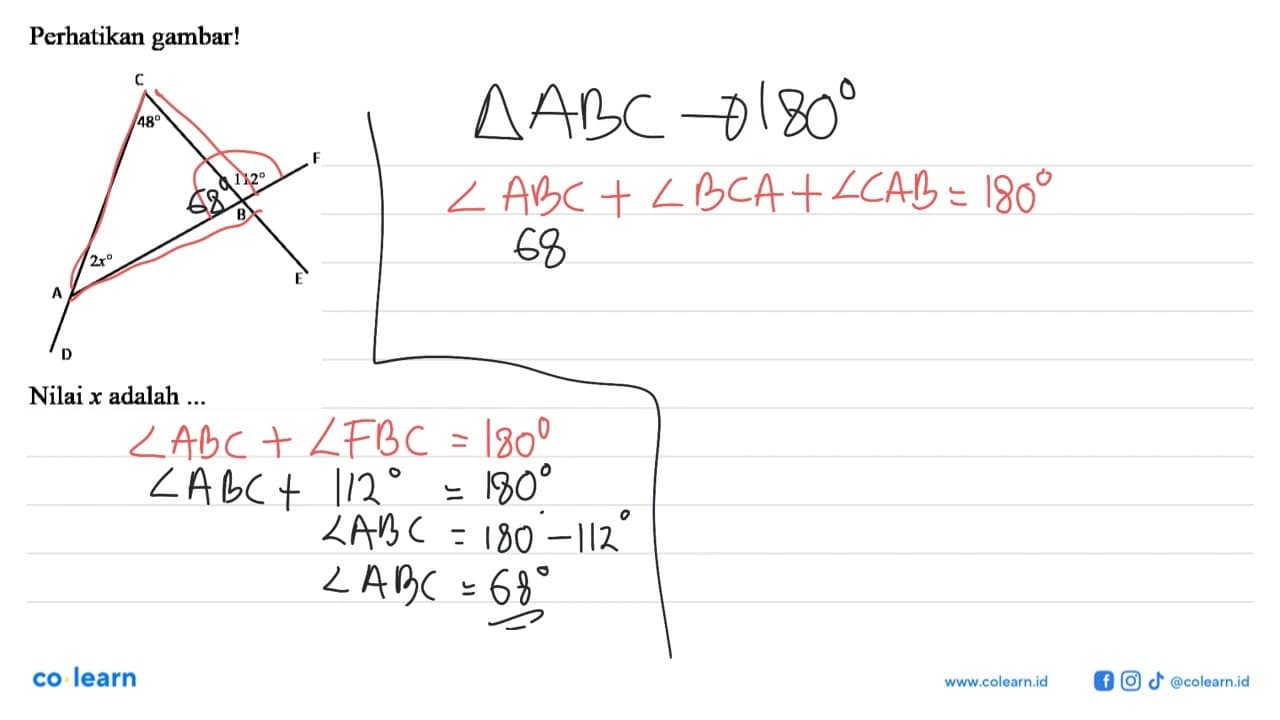 Perhatikan gambar!
C
48°
F
112°
68
B
2x°
E
A
D
△ABC → 180°
∠ABC + ∠BCA + ∠CAB = 180°
68
Nilai x adalah ...
∠ABC + ∠FBC = 180°
∠ABC + 112° = 180°
∠ABC = 180° - 112°
∠ABC = 68°
co learn
www.colearn.id
@colearn.id